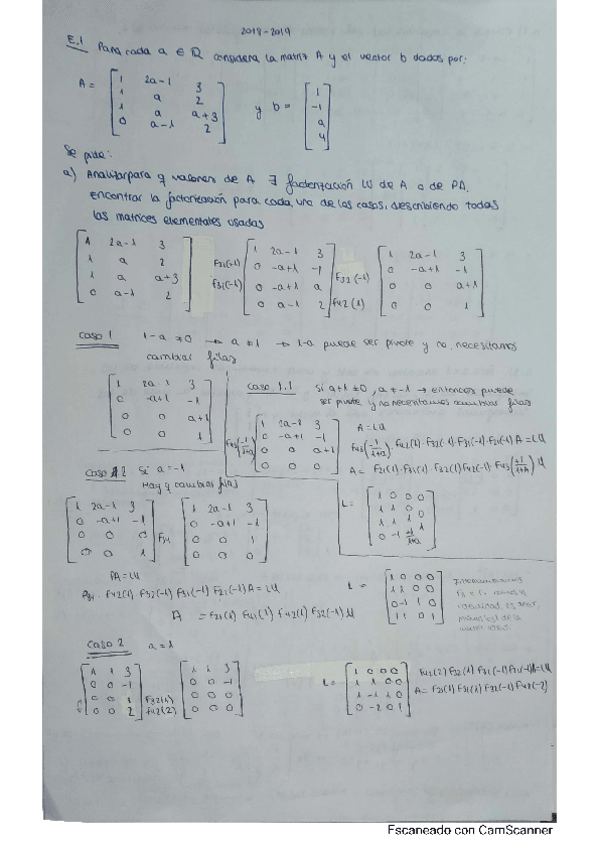 2018-2019
E.1 Para cada a ∈ ℝ considera la matriz A y el vector b dados por:
A = [1 2a-1 3; 1 a 2; 1 a a+3; 0 a-1 2] y b = [1; -1; a; 4]
Se pide:
a) Analizar para q valores de A ∃ factorización LU de A o de PA.
encontrar la factorización para cada uno de los casos, describiendo todas
las matrices elementales usadas
[1 2a-1 3; 1 a 2; 1 a a+3; 0 a-1 2] F21(-1) F31(-1) [1 2a-1 3; 0 -a+1 -1; 0 -a+1 a; 0 a-1 2] F32(-1) F42(1) [1 2a-1 3; 0 -a+1 -1; 0 0 a+1; 0 0 1]
Caso 1 1-a ≠ 0 → a ≠ 1 → 1-a puede ser pivote y no necesitamos
cambiar filas
[1 2a-1 3; 0 -a+1 -1; 0 0 a+1; 0 0 1]
Caso 1.1 Si a+1 ≠ 0, a ≠ -1 → entonces puede
ser pivote y no necesitamos cambiar filas
F43(-1/1+a) [1 2a-1 3; 0 -a+1 -1; 0 0 a+1; 0 0 0]
A = LU
F43(-1/1+a) · F42(1) · F32(-1) · F31(-1) · F21(-1) A = LU
A = F21(1) · F31(1) · F32(1) F42(-1) · F43(+1/1+a) U
L = [1 0 0 0; 1 1 0 0; 1 1 1 1; 0 -1 1/1+a]
Caso 1.2 Si a = -1
Hay q cambiar filas
[1 2a-1 3; 0 -a+1 -1; 0 0 0; 0 0 1] F34 [1 2a-1 3; 0 -a+1 -1; 0 0 1; 0 0 0]
PA = LU
P34 · F42(-1) F32(-1) F31(-1) F21(-1) A = LU
A = F21(1) F41(1) F42(1) F32(-1) U
L = [1 0 0 0; 1 1 0 0; 0 -1 1 0; 1 1 0 1]
Caso 2 a = 1
[1 1 3; 0 0 -1; 0 0 1; 0 0 2] F32(1) F42(2) [1 1 3; 0 0 -1; 0 0 0; 0 0 0]
L = [1 0 0 0; 1 1 0 0; 1 -1 1 0; 0 -2 0 1]
F42(2) F32(1) F31(-1) F21(-1) A = LU
A = F21(1) F31(1) F32(-1) F42(-2)
Escaneado con CamScanner